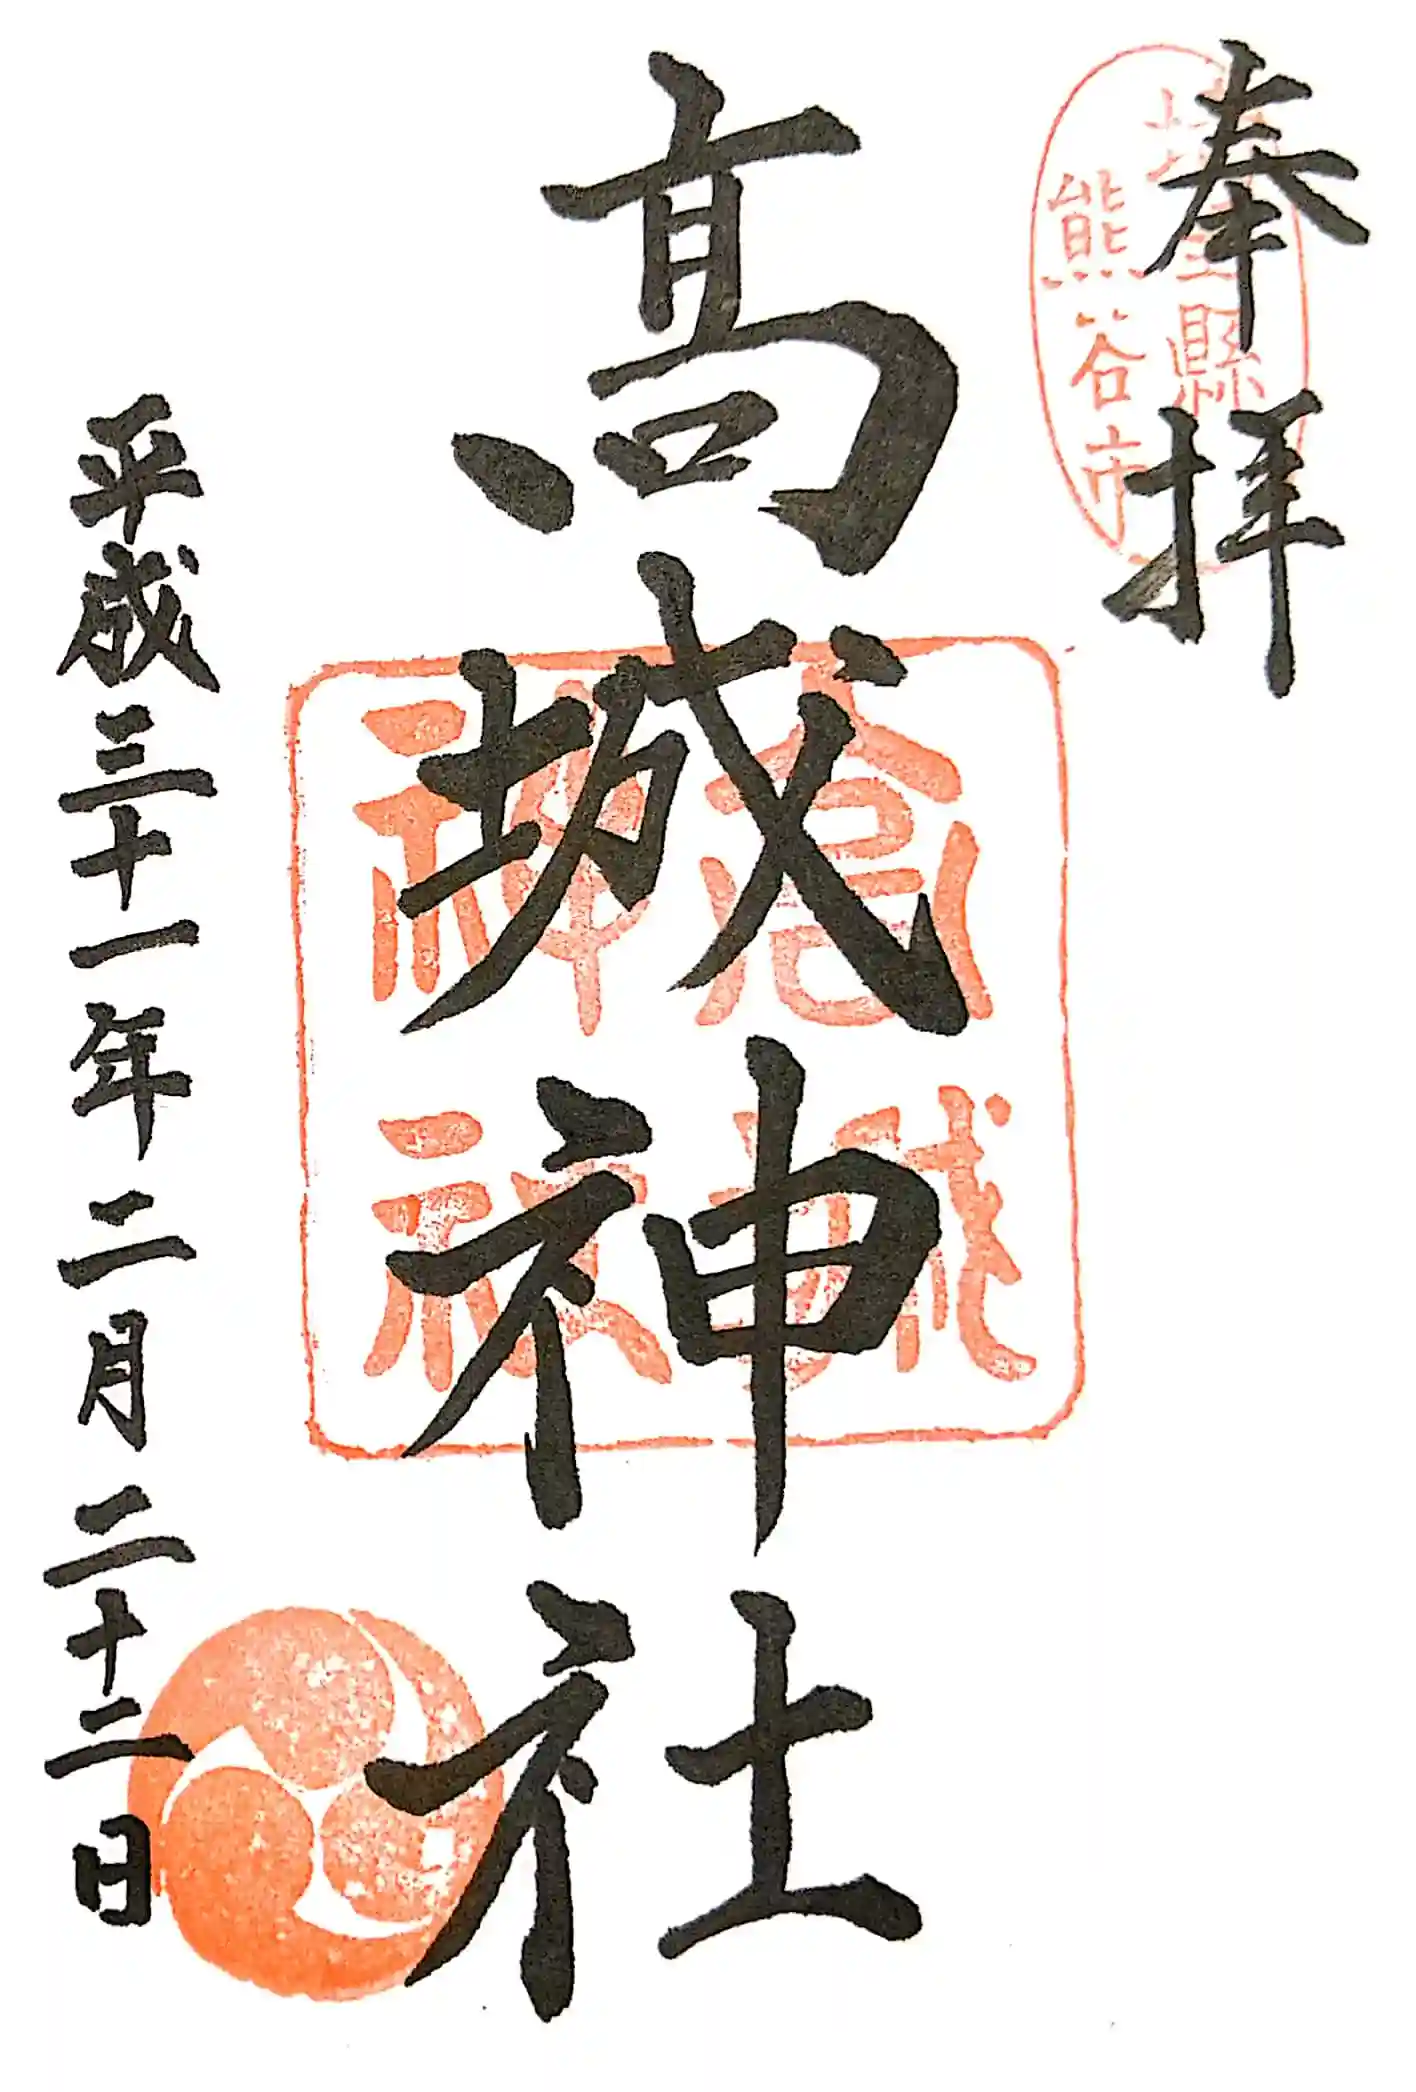 奉拝
埼玉縣
熊谷市
髙城神社
高城
神社
平成三十一年二月二十二日